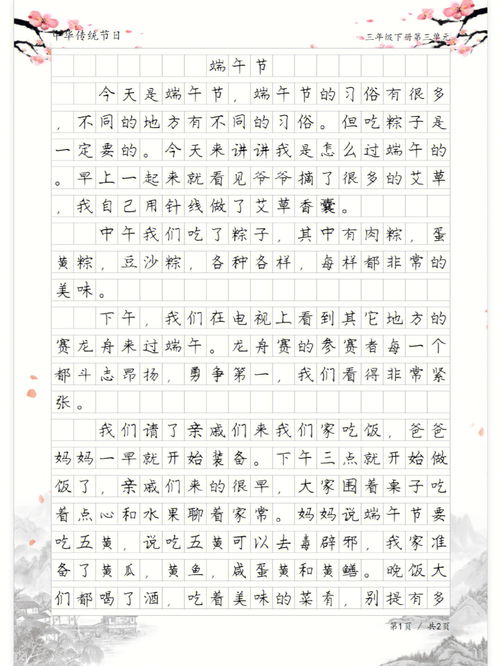 中华传统节日
三年级下册第三单元
端午节
今天是端午节，端午节的习俗有很多
，不同的地方有不同的习俗。但吃粽子是
一定要的。今天来讲讲我是怎么过端午的
。早上一起来就看见爷爷摘了很多的艾草
，我自己用针线做了艾草香囊。
中午我们吃了粽子，其中有肉粽，蛋
黄粽，豆沙粽，各种各样，每样都非常的
美味。
下午，我们在电视上看到其它地方的
赛龙舟来过端午。龙舟赛的参赛者每一个
都斗志昂扬，勇争第一，我们看得非常紧
张。
我们请了亲戚们来我们家吃饭，爸爸
妈妈一早就开始装备。下午三点就开始做
饭了，亲戚们来的很早，大家围着桌子吃
着点心和水果聊着家常。妈妈说端午节要
吃五黄，说吃五黄可以去毒辟邪，我家准
备了黄瓜，黄鱼，咸蛋黄和黄鳝。晚饭大
们都喝了酒，吃着美味的菜肴，别提有多
第1页 / 共2页